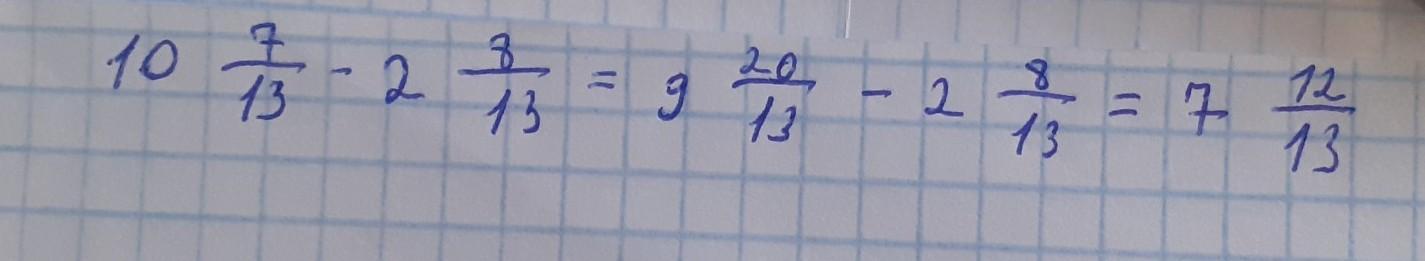 10 7/13 - 2 8/13 = 9 20/13 - 2 8/13 = 7 12/13